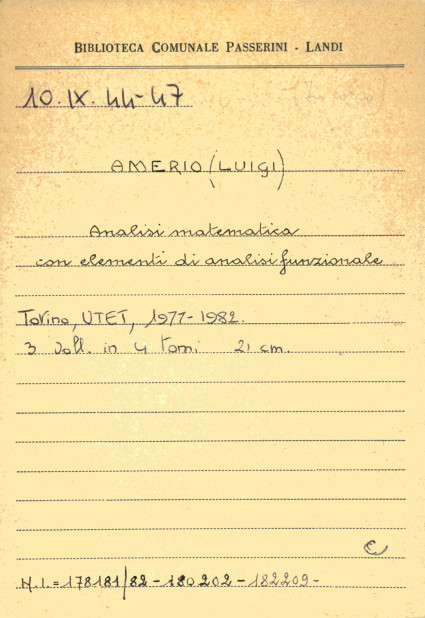 BIBLIOTECA COMUNALE PASSERINI - LANDI
10. IX. 44-47
AMERIO (LUIGI)
Analisi matematica
con elementi di analisi funzionale
Torino, UTET, 1977-1982.
3 Voll. in 4 Tomi 21 cm.
N.I. = 178181/82 - 180202 - 182209 -